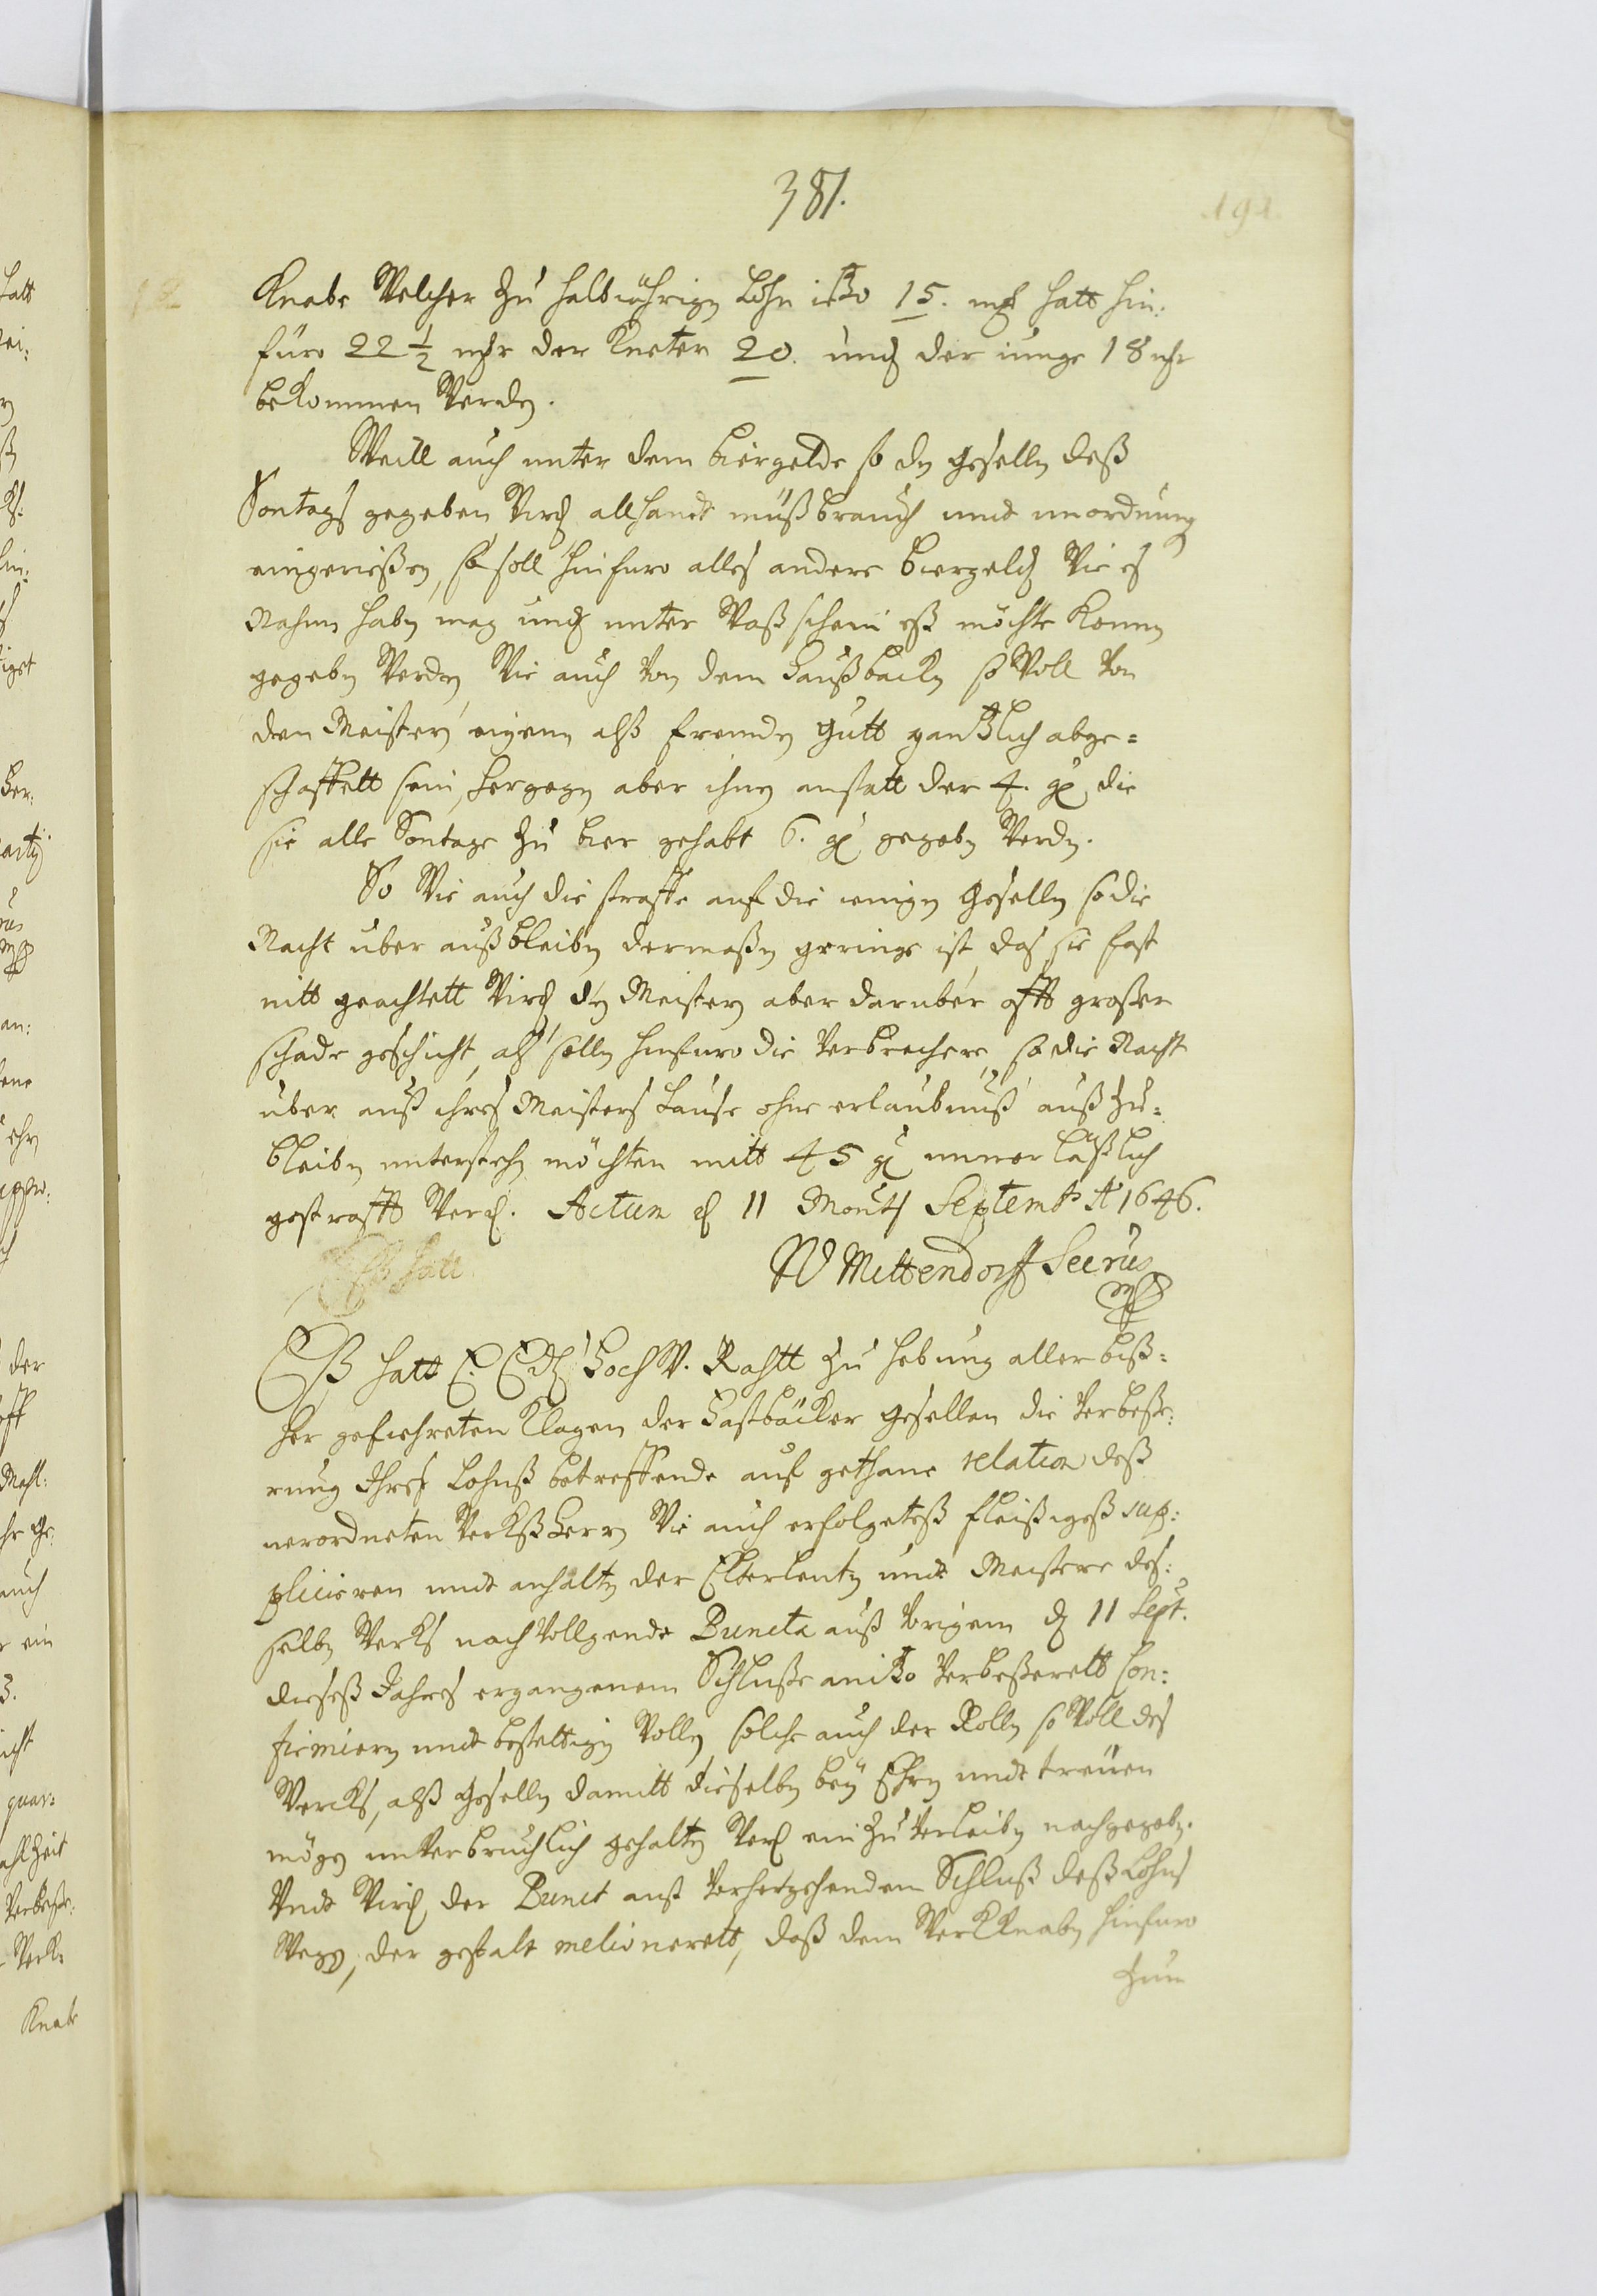 381.
191
Knabe Welcher zu halbiährign Lohn itzo 15. mk hatt hin:
füro 22 ½ mkr der Kneter 20. und der iunge 18 mkr
bekommen Werdn.
Weill auch unter dem biergelde so dn Geselln deß
Sontags gegeben Wird allhandt mißbrauch undt unordnung
eingerißen, so soll hinfuro alles andere biergeld Wie es
Nahmn habn mag und unter Waß schein eß möchte komn
gegebn Werdn, Wie auch von dem Haußbackn so Woll von
den Meistern eignem alß frembdn Gutt gantzlich abge=
schaffett sein, hergegn aber ihnn anstatt der 4. g, die
sie alle Sontage zu bier gehabt 6. g gegebn Werdn.
So Wie auch die straffe auf die ienign Geselln so die
Nacht uber außbleibn dermaßn geringe ist, das sie fast
nitt geachtett Wird, dn Meistern aber daruber offt großer
schade geschicht, alß solln hinfuro die Verbrechere, so die Nacht
uber auß ihres Meisters Hause ohne erlaubnuß auß zu=
bleibn unterstehn möchten mitt 45 g unnerläßlich
gestrafft Werd. Actum d 11 Monts Septemb A 1646.
Eß hatt
W Mettendorff Secrus
mp
Eß hatt E. Edl Hoch W. Rahtt zu hebung aller biß=
her gefuhreten Klagen der Fastbäcker Gesellen die Verbeße:
rung Ihres Lohnß betreffende auf gethane relation deß
verordneten WerckßHerrn Wie auch erfolgeteß fleißigeß sup:
plicieren undt anhaltn der Elterleutn undt Meistere des:
selbn Wercks nachVollgende Puncta auß Vorigem d 11 Sept.
dieseß Jahres ergangenem Schluße anitzo Verbeßerett Con:
firmiern undt bestettign Wolln, solche auch der Rolln so Woll des
Wercks, alß Geselln damitt dieselbn bey Ehrn undt treuen
mögn unVerbruchlich gehaltn Werd ein zu Verleibn nachgegebn.
Undt Wird der Punct auß Vorhergehendem Schluß deß Lohns
Wegn, der gestalt meliorerett, daß dem Werckknabn hinfuro
zum